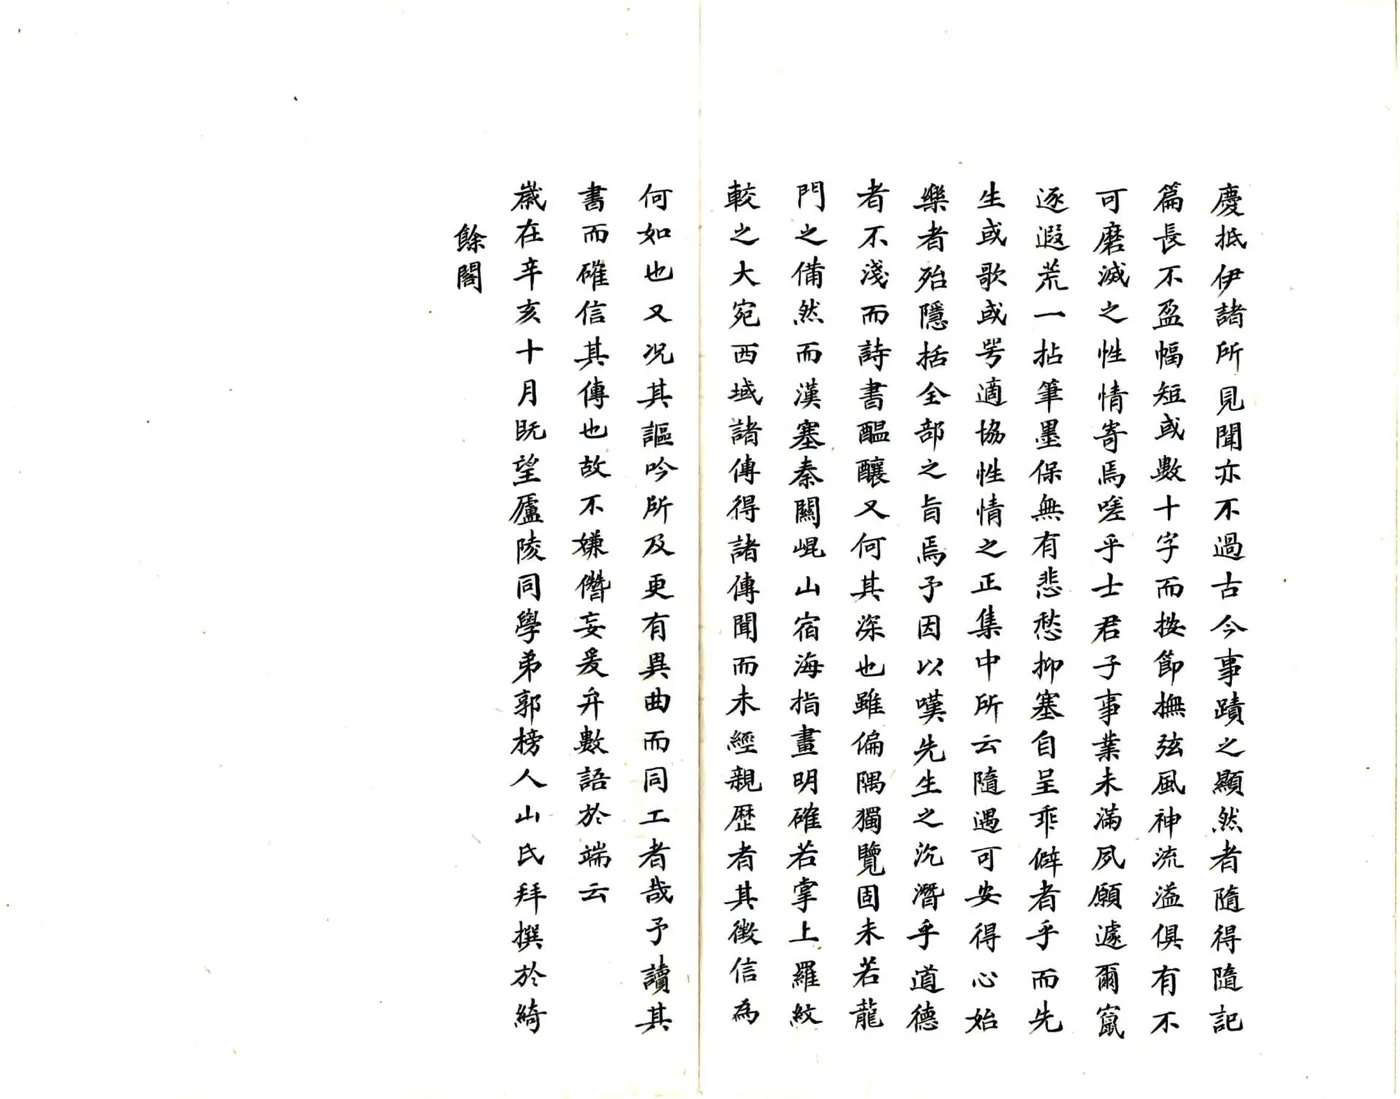 慶抵伊諸所見聞亦不過古今事蹟之顯然者隨得隨記
篇長不盈幅短或數十字而按節撫弦風神流溢俱有不
可磨滅之性情寄焉嗟乎士君子事業未滿夙願遽爾竄
逐遐荒一拈筆墨保無有悲愁抑塞自呈乖僻者乎而先
生或歌或咢適協性情之正集中所云隨遇可安得心始
樂者殆隱括全部之旨焉予因以嘆先生之沉潛乎道德
者不淺而詩書醞釀又何其深也雖偏隅獨覽固未若龍
門之備然而漢塞秦關崐山宿海指畫明確若掌上羅紋
較之大宛西域諸傳得諸傳聞而未經親歷者其徵信為
何如也又况其謳吟所及更有異曲而同工者哉予讀其
書而確信其傳也故不嫌僭妄爰弁數語於端云
歲在辛亥十月既望廬陵同學弟郭榜人山氏拜撰於綺
餘閣